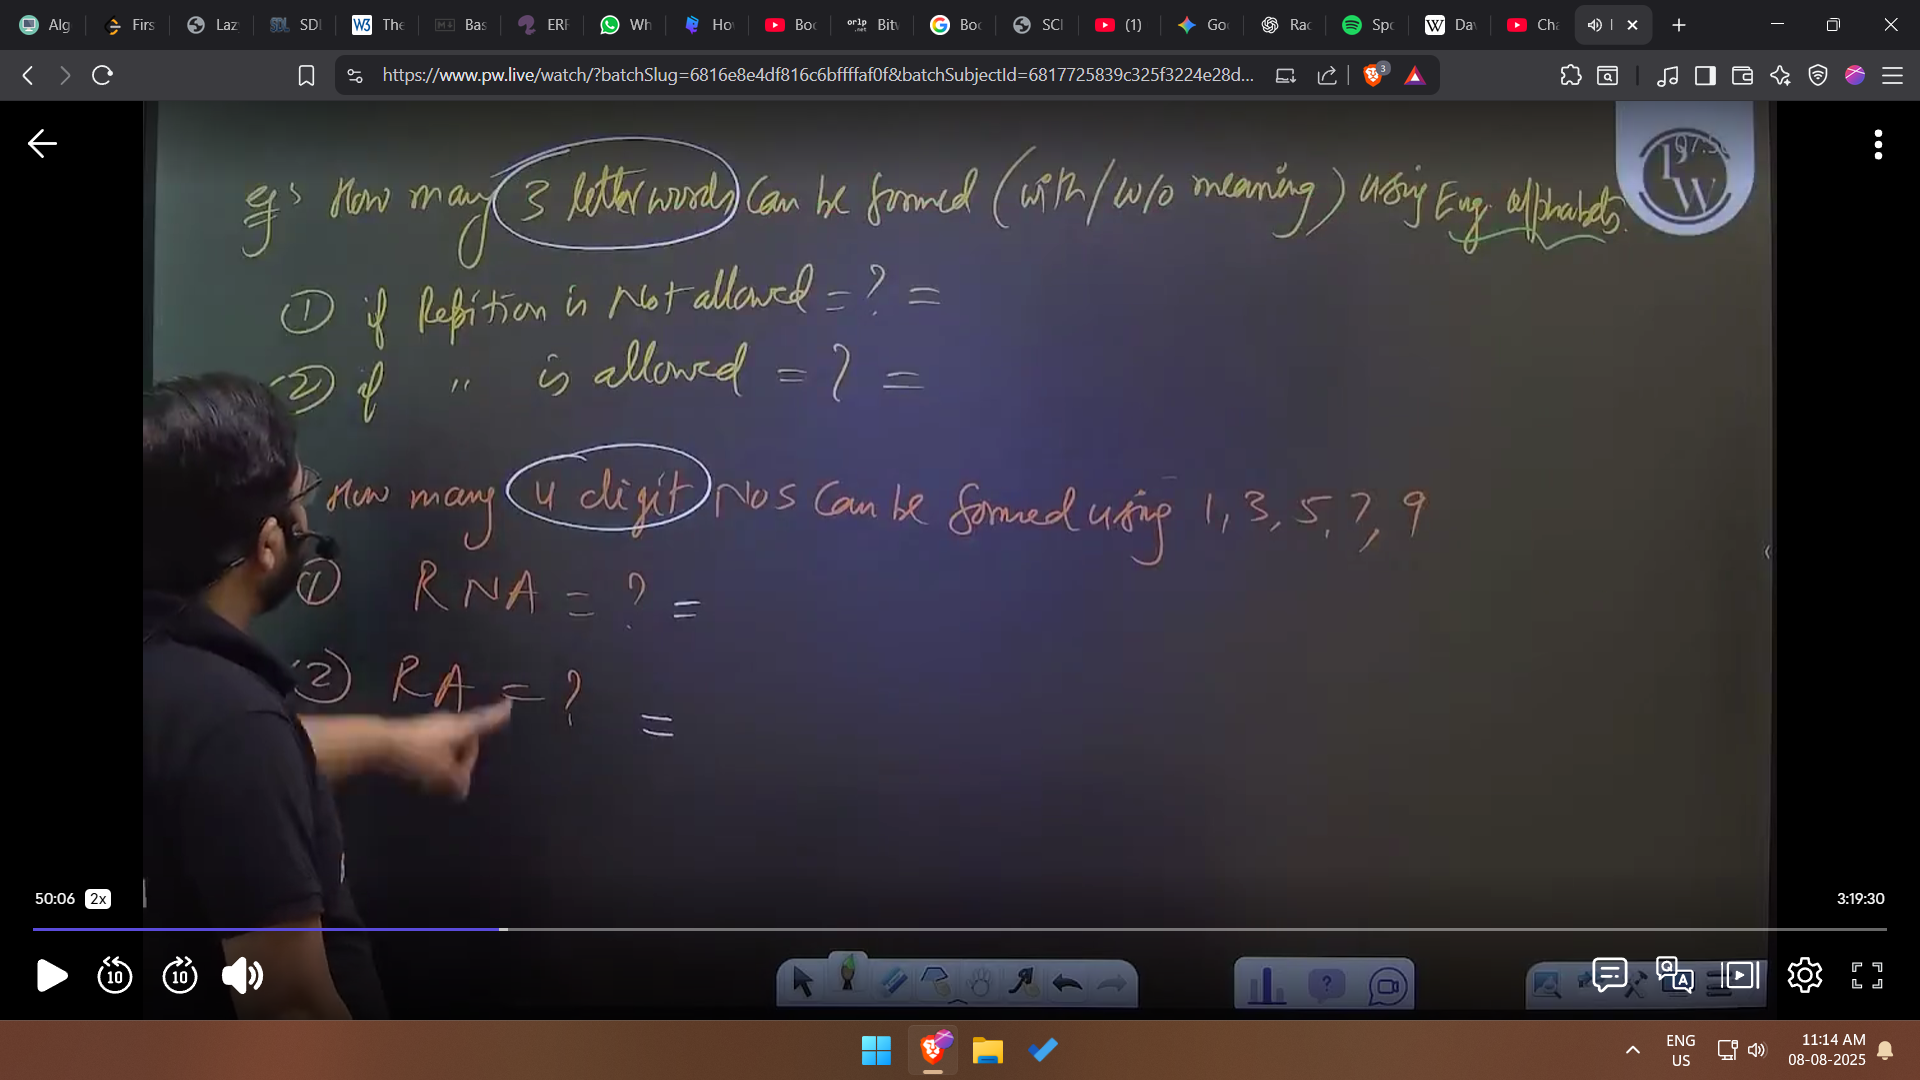 Alg
Firs
Laz
SDI
The
Bas
ERF
Wh
Hov
Boc
Bitv
Boc
SCI
(1)
Goo
Rac
Spo
Dav
Cha
https://www.pw.live/watch/?batchSlug=6816e8e4df816c6bffffaf0f&batchSubjectId=6817725839c325f3224e28d...
3
eg: How many 3 letter words Can be formed (with/w/o meaning) using Eng. alphabets.
① if Repition is Not allowed = ? =
② if " is allowed = ? =
How many 4 digit Nos Can be formed using 1, 3, 5, 7, 9
① RNA = ? =
② RA = ? =
PW
50:06 2x
3:19:30
10
10
ENG
US
11:14 AM
08-08-2025